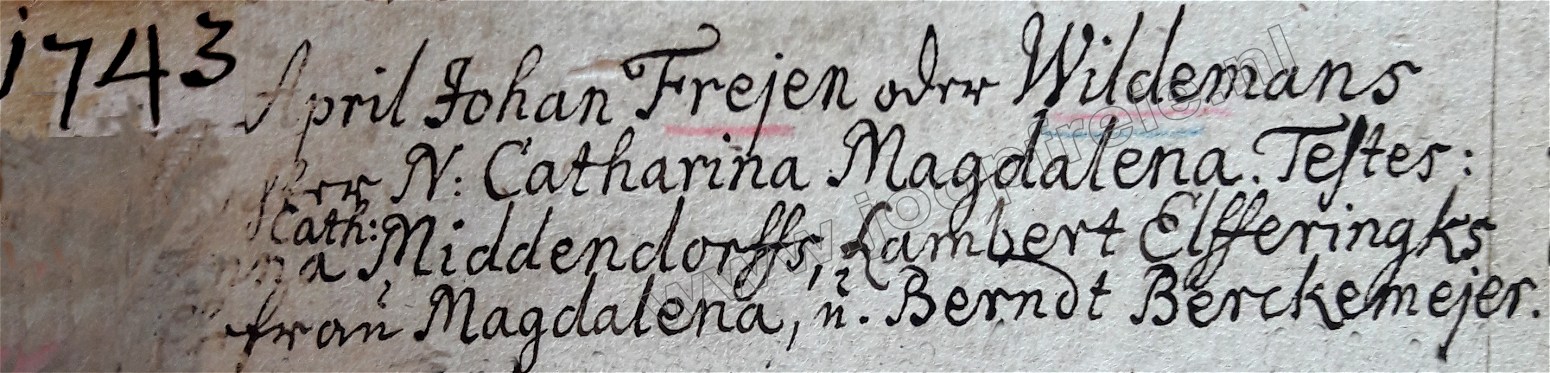 1743
April Johan Frejen oder Wildemans
N: Catharina Magdalena. Testes:
Cath: Middendorffs, Lambert Elfferingks
frau Magdalena, u. Berndt Berckemejer.